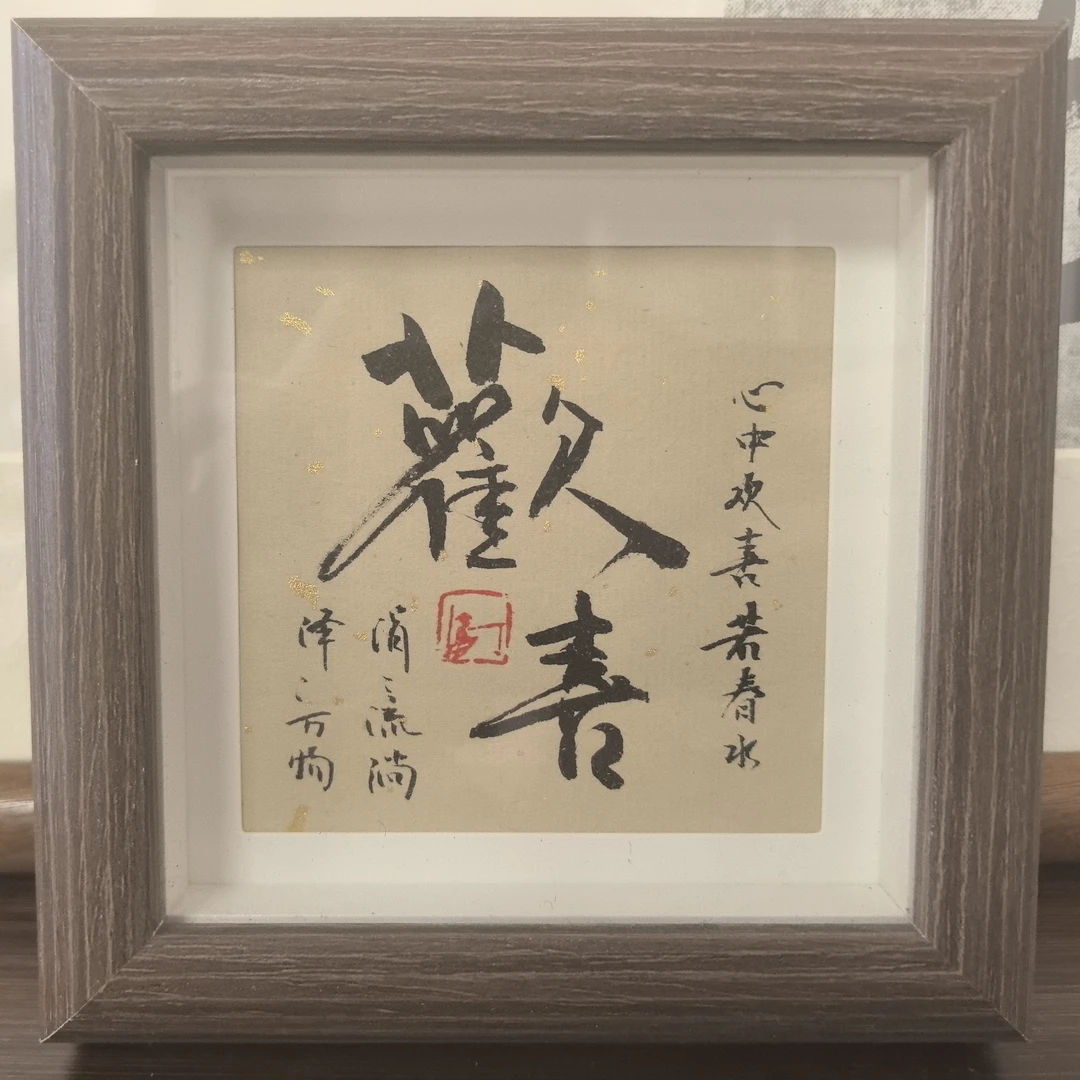 心中欢喜若春水
歡喜
涓々流淌
泽之万物